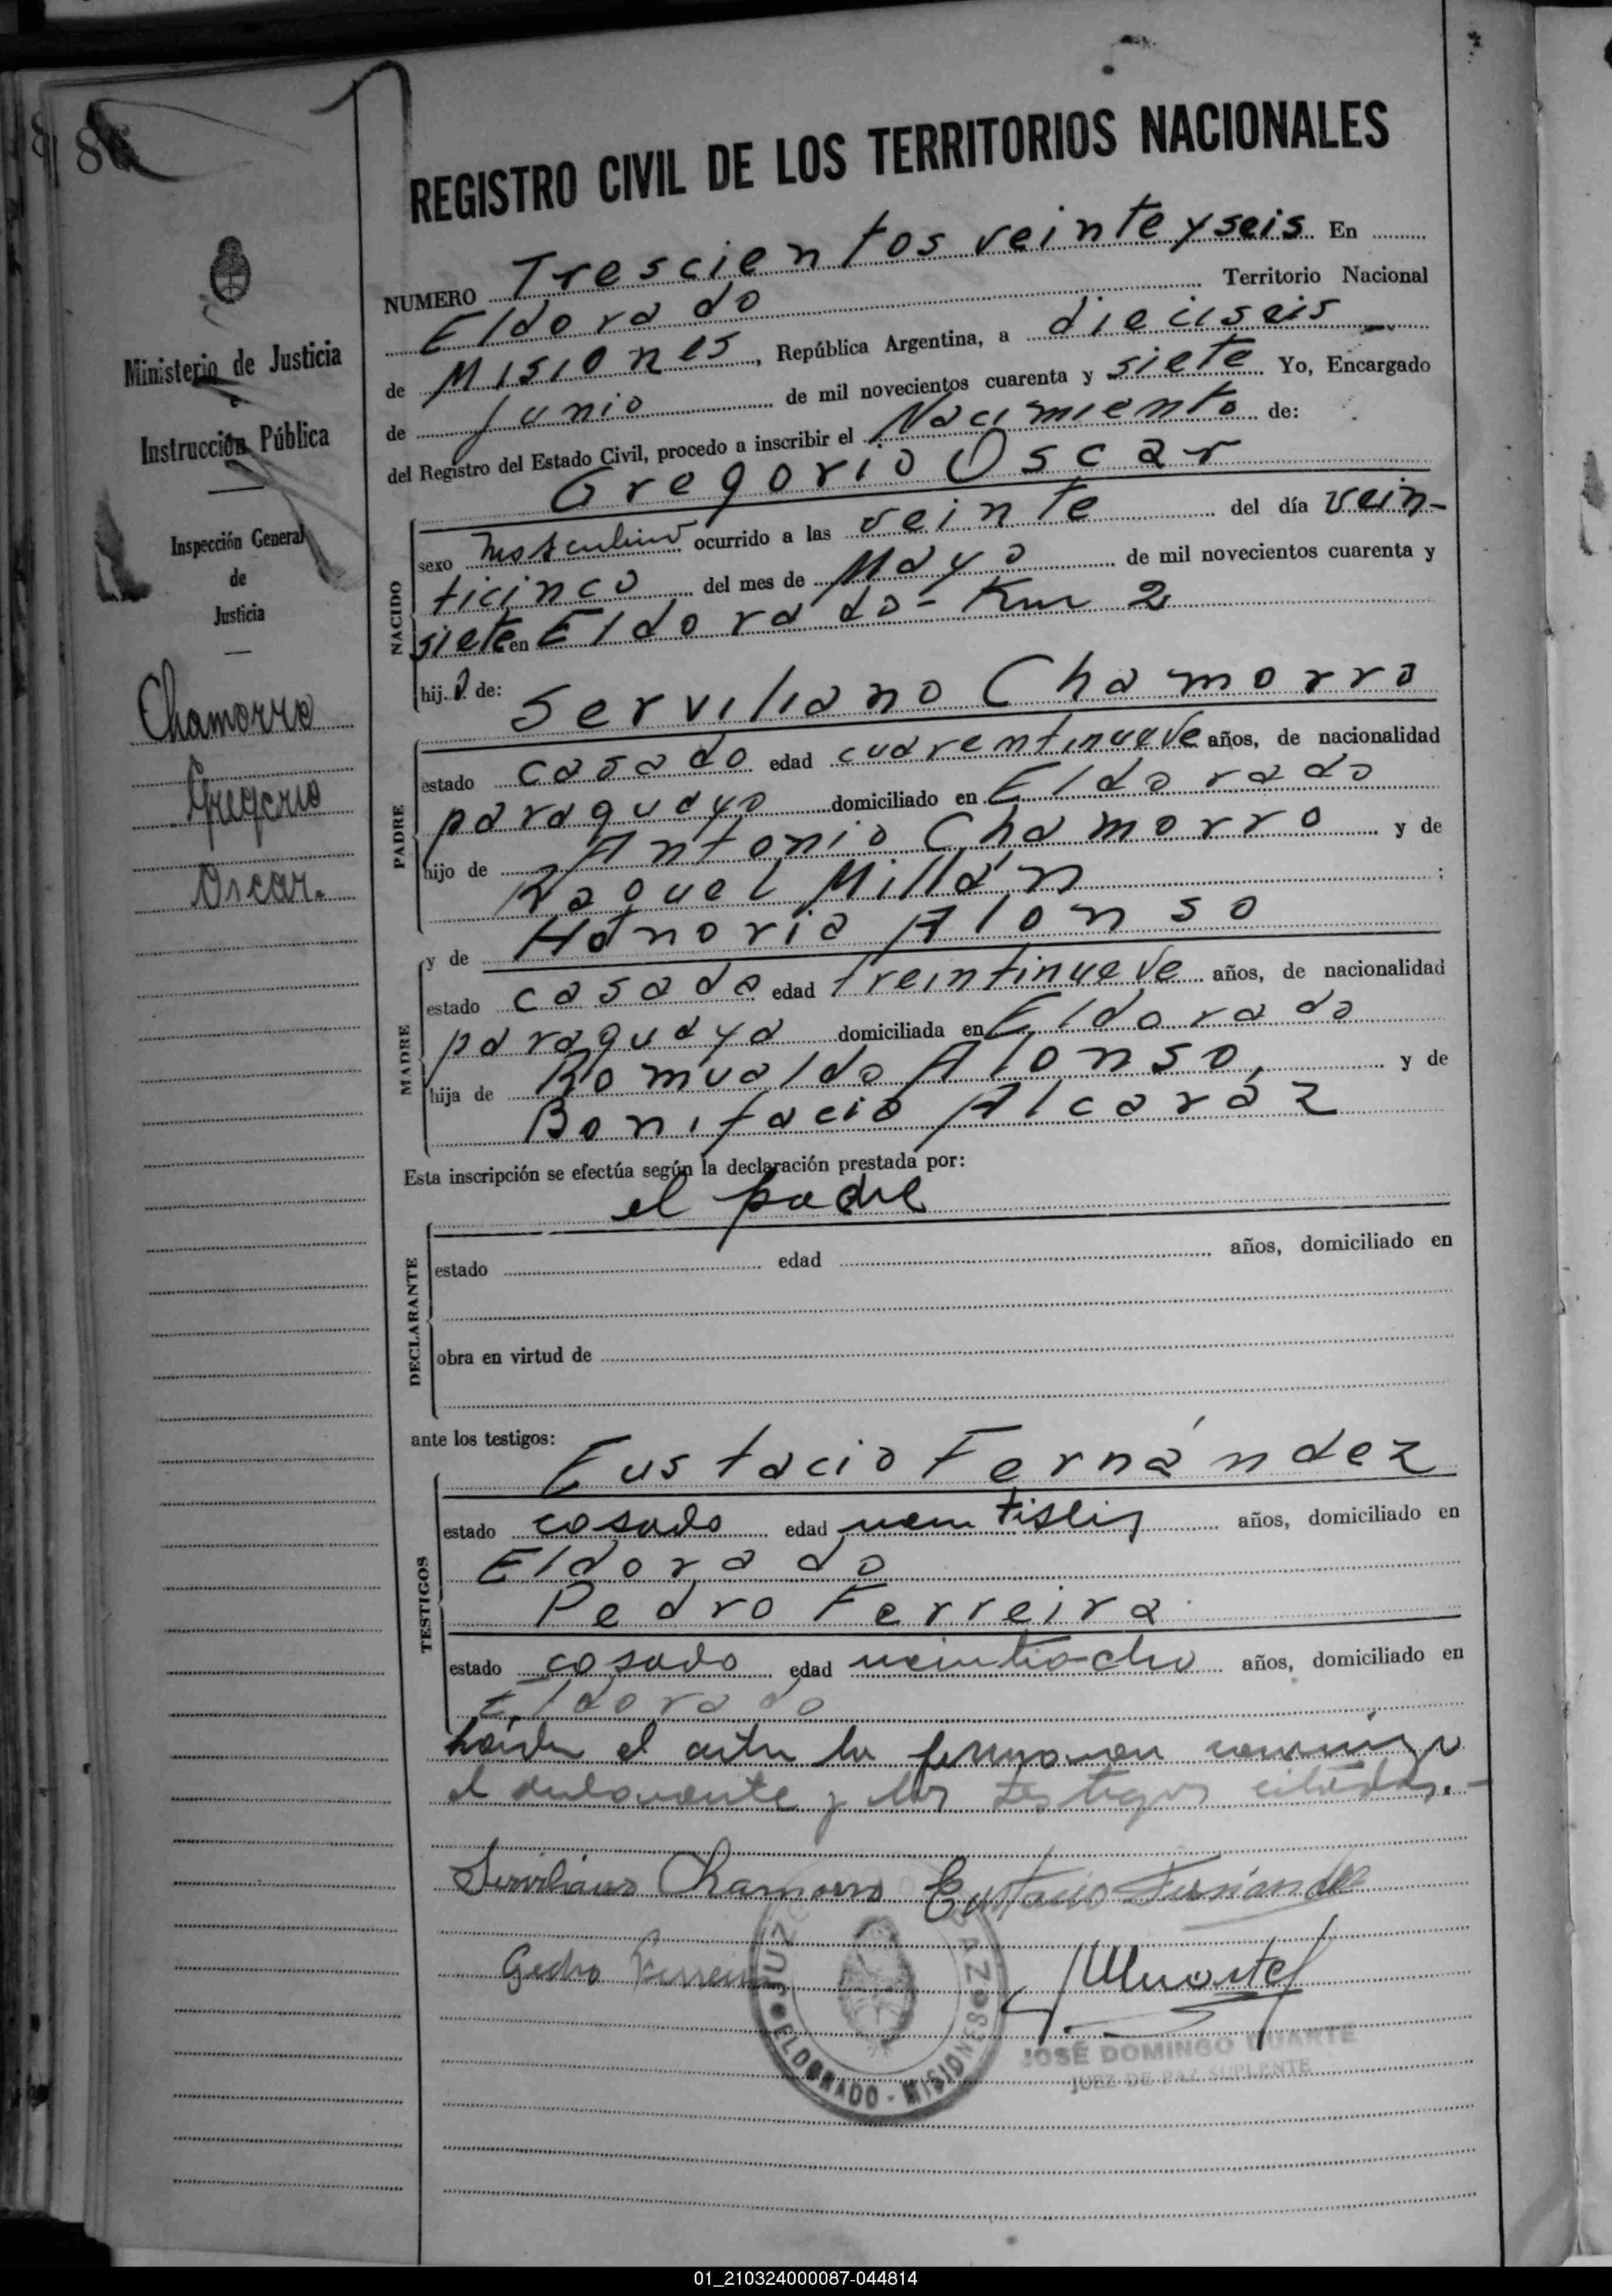 86
REGISTRO CIVIL DE LOS TERRITORIOS NACIONALES
Ministerio de Justicia
e
Instrucción Pública
Inspección General
de
Justicia
Chamorro
Gregorio
Oscar.
NUMERO Trescientos veinte y seis En
Eldorado Territorio Nacional
de Misiones, República Argentina, a dieciseis
de Junio de mil novecientos cuarenta y siete Yo, Encargado
del Registro del Estado Civil, procedo a inscribir el Nacimiento de:
Gregorio Oscar
NACIDO
sexo masculino ocurrido a las veinte del día vein-
ticinco del mes de Mayo de mil novecientos cuarenta y
siete en Eldorado - Km 2
hijo de: Serviliano Chamorro
PADRE
estado casado edad cuarentinueve años, de nacionalidad
paraguayo domiciliado en Eldorado
hijo de Antonio Chamorro y de
Raquel Millán ;
y de Honoria Alonso
MADRE
estado casada edad treintinueve años, de nacionalidad
paraguaya domiciliada en Eldorado
hija de Romualdo Alonso y de
Bonifacia Alcaráz
Esta inscripción se efectúa según la declaración prestada por:
el padre
DECLARANTE
estado edad años, domiciliado en
obra en virtud de
ante los testigos:
Eustacio Fernández
TESTIGOS
estado casado edad veintiseis años, domiciliado en
Eldorado
Pedro Ferreira
estado casado edad veintiocho años, domiciliado en
Eldorado
el acta la firmaron conmigo
el declarante y los testigos citados.-
Serviliano Chamorro Eustacio Fernandez
Pedro Ferreira
ELDORADO - MISIONES
JOSÉ DOMINGO DUARTE
JUEZ DE PAZ SUPLENTE
01_210324000087-044814